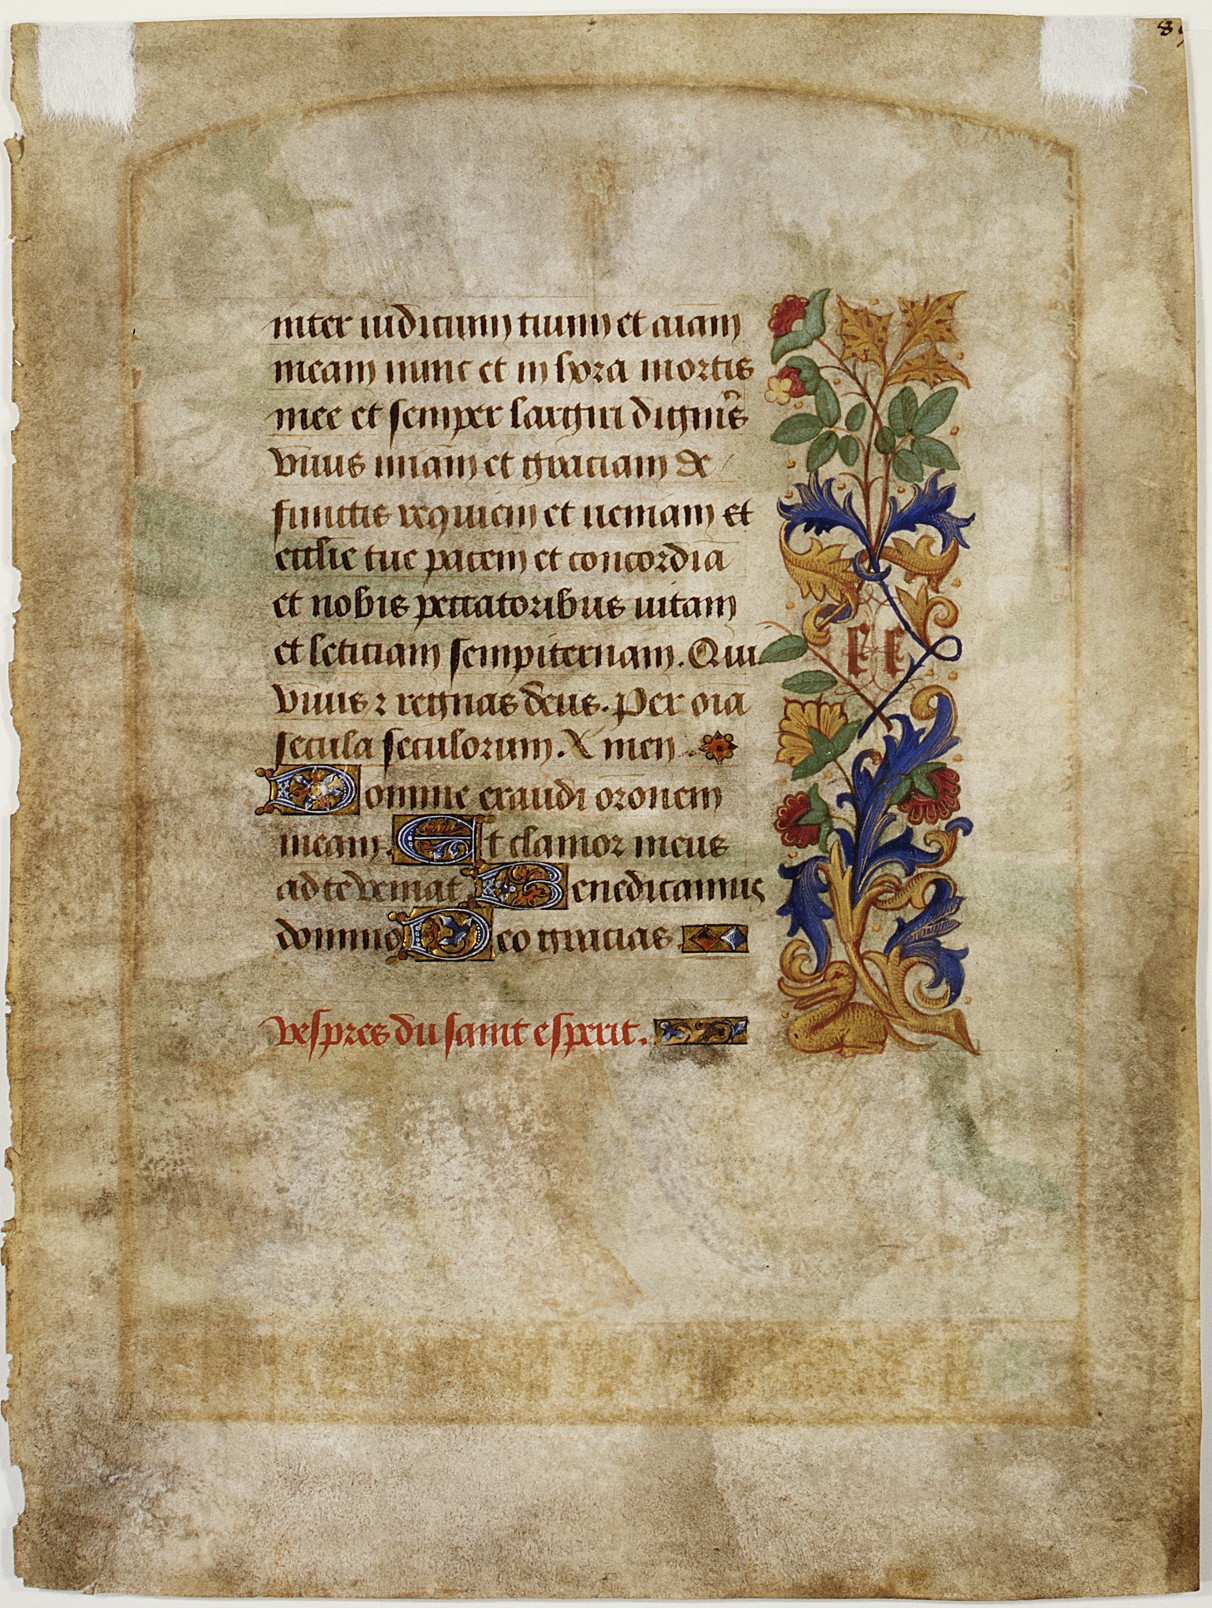 89
inter iudicium tuum et aīam
meam nunc et in hora mortis
mee et semper largiri digneris
viuus miam et graciam de
functis requiem et ueniam et
ecclie tue pacem et concordia
et nobis peccatoribus uitam
et leticiam sempiternam. Qui
viuis ⁊ regnas deus. Per oia
secula seculorum. Amen
Domine exaudi oronem
meam. Et clamor meus
ad te veniat Benedicamus
domino Deo gracias
vespres du saint esperit.